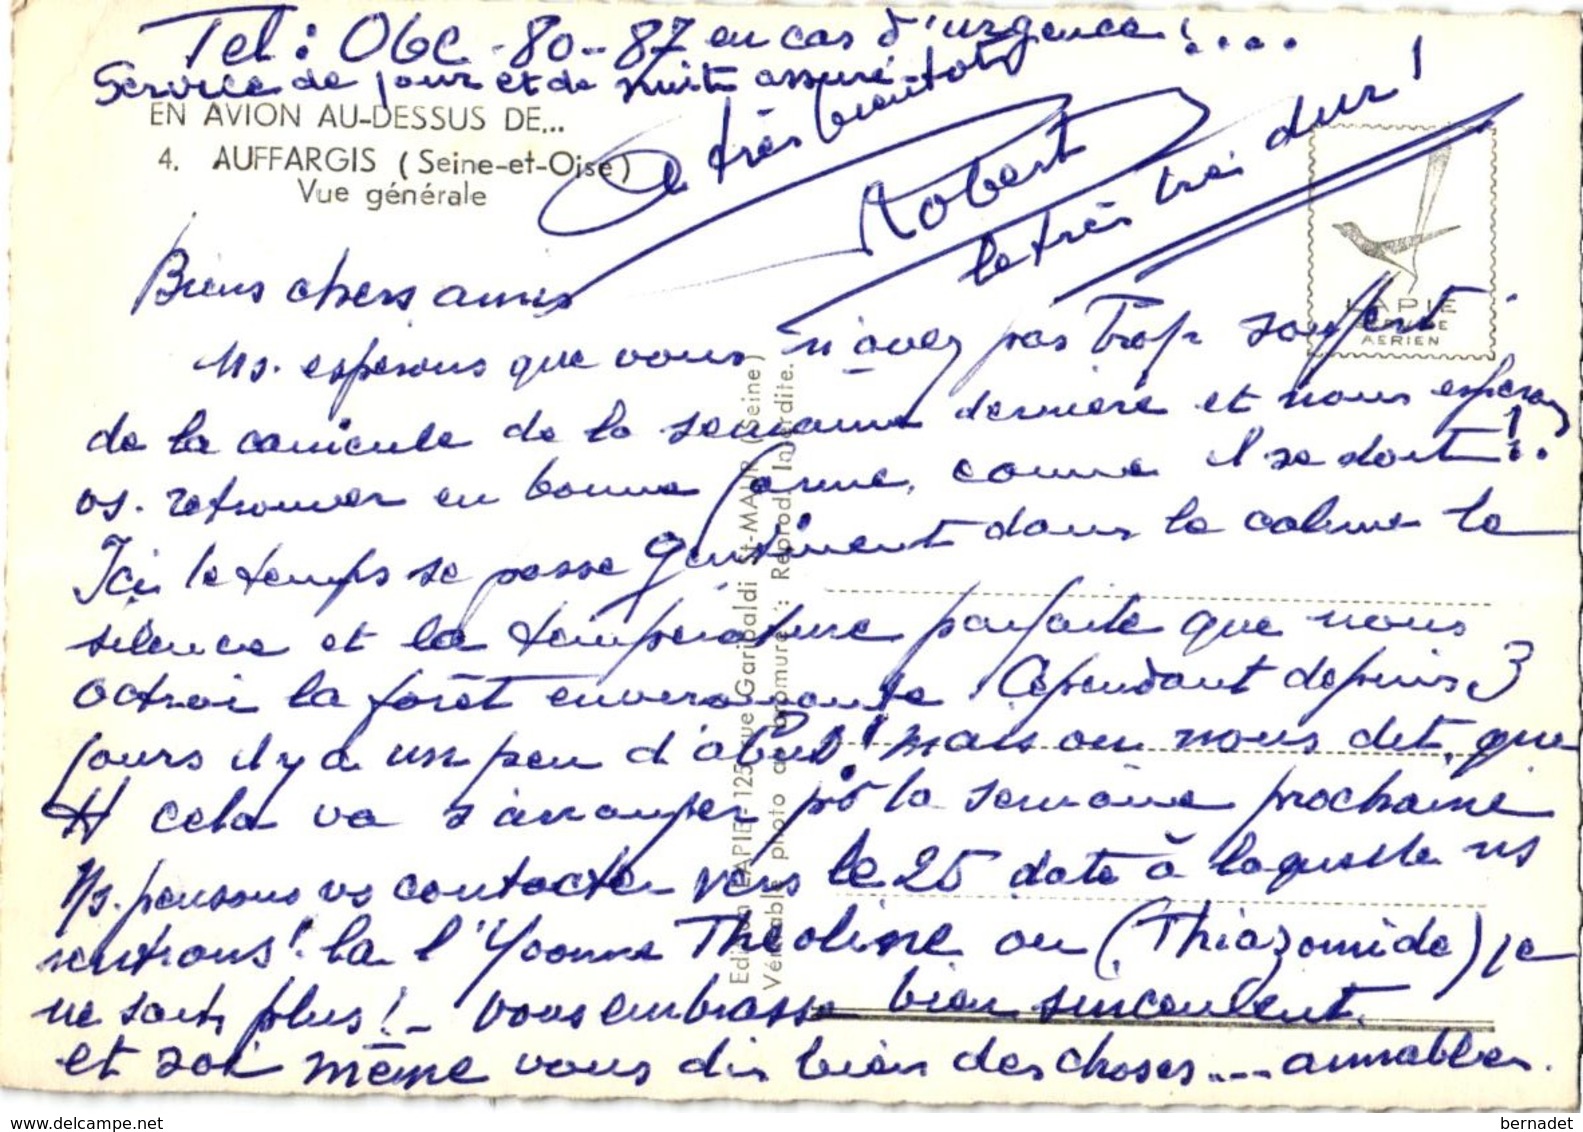 Tel: Obc-80-87 en cas d'urgence!....
Service de jour et de nuit assuré.
EN AVION AU-DESSUS DE...
4. AUFFARGIS (Seine-et-Oise)
Vue générale
a très bientôt
Robert
le très très dur!
LAPIE
SERVICE
AERIEN
Biens chers amis
Ns. esperons que vous n'avez pas Trop souffert
de la canicule de la semaine derniere et nous esperons
vs. retrouver en bonne forme, comme il se doit!..
Ici le temps se passe gentiment dans le calme le
silence et la température parfaite que nous
octroi la forêt environnante. Cependant depuis 3
jours il y a un peu d'abus! mais on nous dit, que
cela va s'arranger pr la semaine prochaine
Ns. pensons vs contacter vers le 25 date à laquelle ns
rentrons! la l'Yvonne Théoline ou (Thiazomide) je
ne sais plus! - vous embrasse bien sincerement.
et soi même vous dis bien des choses.... aimables.
Edition LAPIE - 125, rue Garibaldi St-MAUR (Seine)
Véritable photo au bromure : Reprod. Interdite.
delcampe.net
bernadet